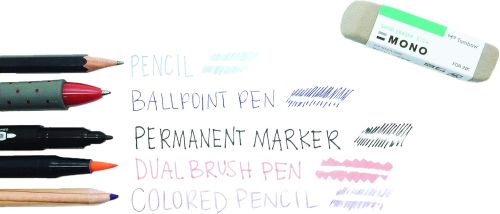 PENCIL
BALLPOINT PEN
PERMANENT MARKER
DUAL BRUSH PEN
COLORED PENCIL
MONO
Tombow
FOR INK